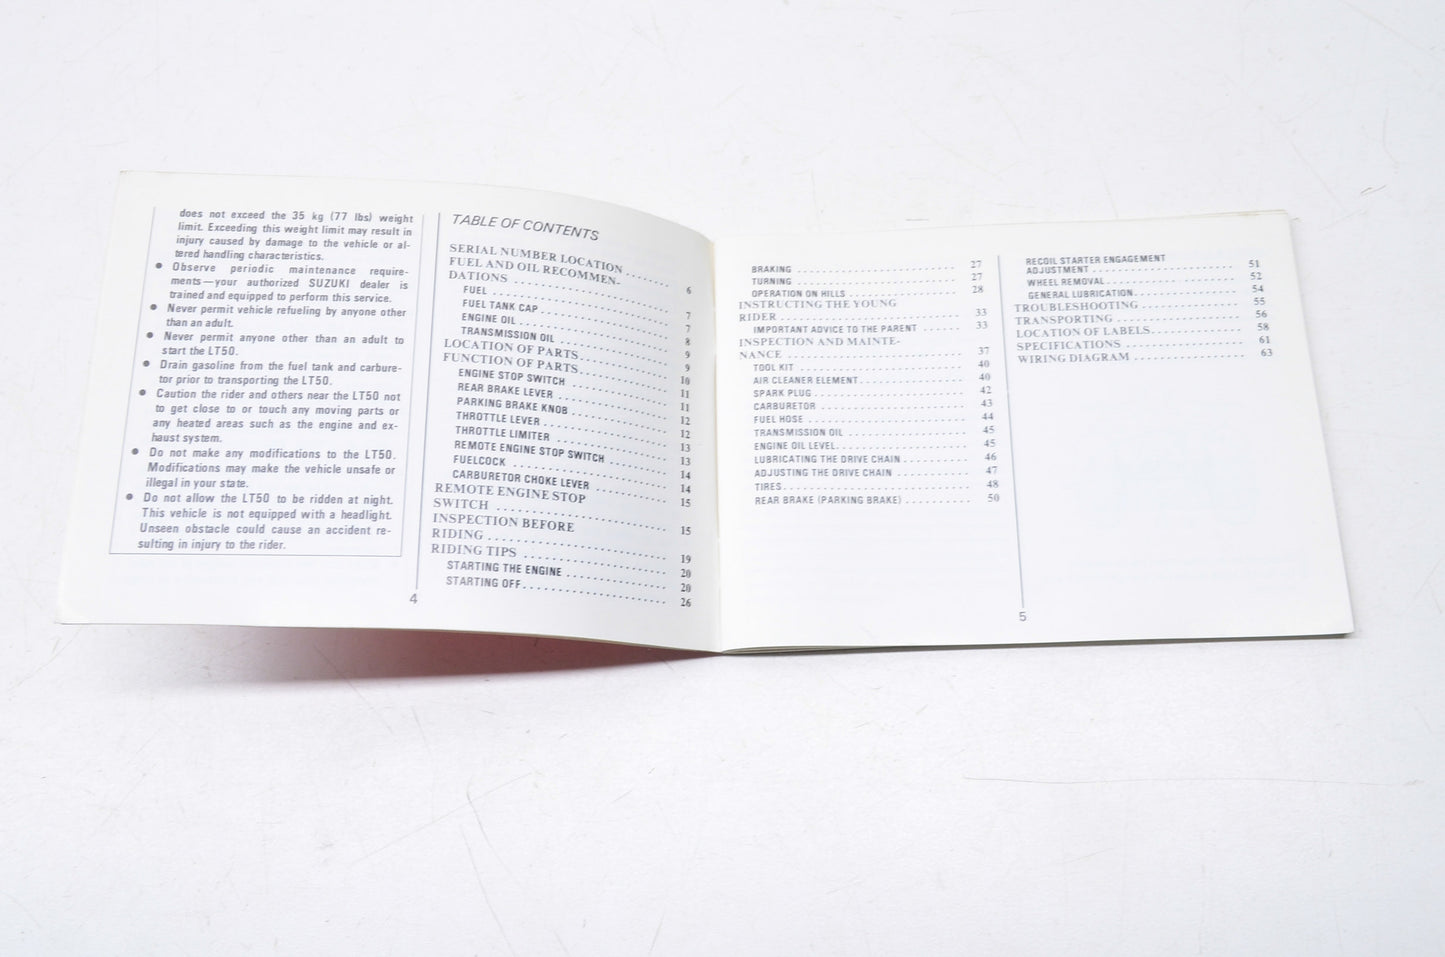 does not exceed the 35 kg (77 lbs) weight
limit. Exceeding this weight limit may result in
injury caused by damage to the vehicle or al-
tered handling characteristics.
● Observe periodic maintenance require-
ments—your authorized SUZUKI dealer is
trained and equipped to perform this service.
● Never permit vehicle refueling by anyone other
than an adult.
● Never permit anyone other than an adult to
start the LT50.
● Drain gasoline from the fuel tank and carbure-
tor prior to transporting the LT50.
● Caution the rider and others near the LT50 not
to get close to or touch any moving parts or
any heated areas such as the engine and ex-
haust system.
● Do not make any modifications to the LT50.
Modifications may make the vehicle unsafe or
illegal in your state.
● Do not allow the LT50 to be ridden at night.
This vehicle is not equipped with a headlight.
Unseen obstacle could cause an accident re-
sulting in injury to the rider.
TABLE OF CONTENTS
SERIAL NUMBER LOCATION ....... 6
FUEL AND OIL RECOMMEN-
DATIONS ....................... 7
FUEL .......................... 7
FUEL TANK CAP .................. 8
ENGINE OIL ..................... 9
TRANSMISSION OIL ............... 9
LOCATION OF PARTS .............. 10
FUNCTION OF PARTS .............. 11
ENGINE STOP SWITCH ............. 11
REAR BRAKE LEVER ............... 12
PARKING BRAKE KNOB ............. 12
THROTTLE LEVER ................. 13
THROTTLE LIMITER ............... 13
REMOTE ENGINE STOP SWITCH ....... 14
FUELCOCK ...................... 14
CARBURETOR CHOKE LEVER .......... 15
REMOTE ENGINE STOP
SWITCH ........................ 15
INSPECTION BEFORE
RIDING ......................... 19
RIDING TIPS .................... 20
STARTING THE ENGINE ............. 20
STARTING OFF ................... 26
4
BRAKING ....................... 27
TURNING ....................... 27
OPERATION ON HILLS .............. 28
INSTRUCTING THE YOUNG
RIDER ......................... 33
IMPORTANT ADVICE TO THE PARENT ...... 33
INSPECTION AND MAINTE-
NANCE ......................... 37
TOOL KIT ...................... 40
AIR CLEANER ELEMENT ............. 40
SPARK PLUG ..................... 42
CARBURETOR .................... 43
FUEL HOSE ..................... 44
TRANSMISSION OIL ............... 45
ENGINE OIL LEVEL ................ 45
LUBRICATING THE DRIVE CHAIN ....... 46
ADJUSTING THE DRIVE CHAIN ......... 47
TIRES .......................... 48
REAR BRAKE (PARKING BRAKE) ........ 50
RECOIL STARTER ENGAGEMENT
ADJUSTMENT .................... 51
WHEEL REMOVAL .................. 52
GENERAL LUBRICATION ............. 54
TROUBLESHOOTING ............... 55
TRANSPORTING .................. 56
LOCATION OF LABELS ............. 58
SPECIFICATIONS ................. 61
WIRING DIAGRAM ................ 63
5